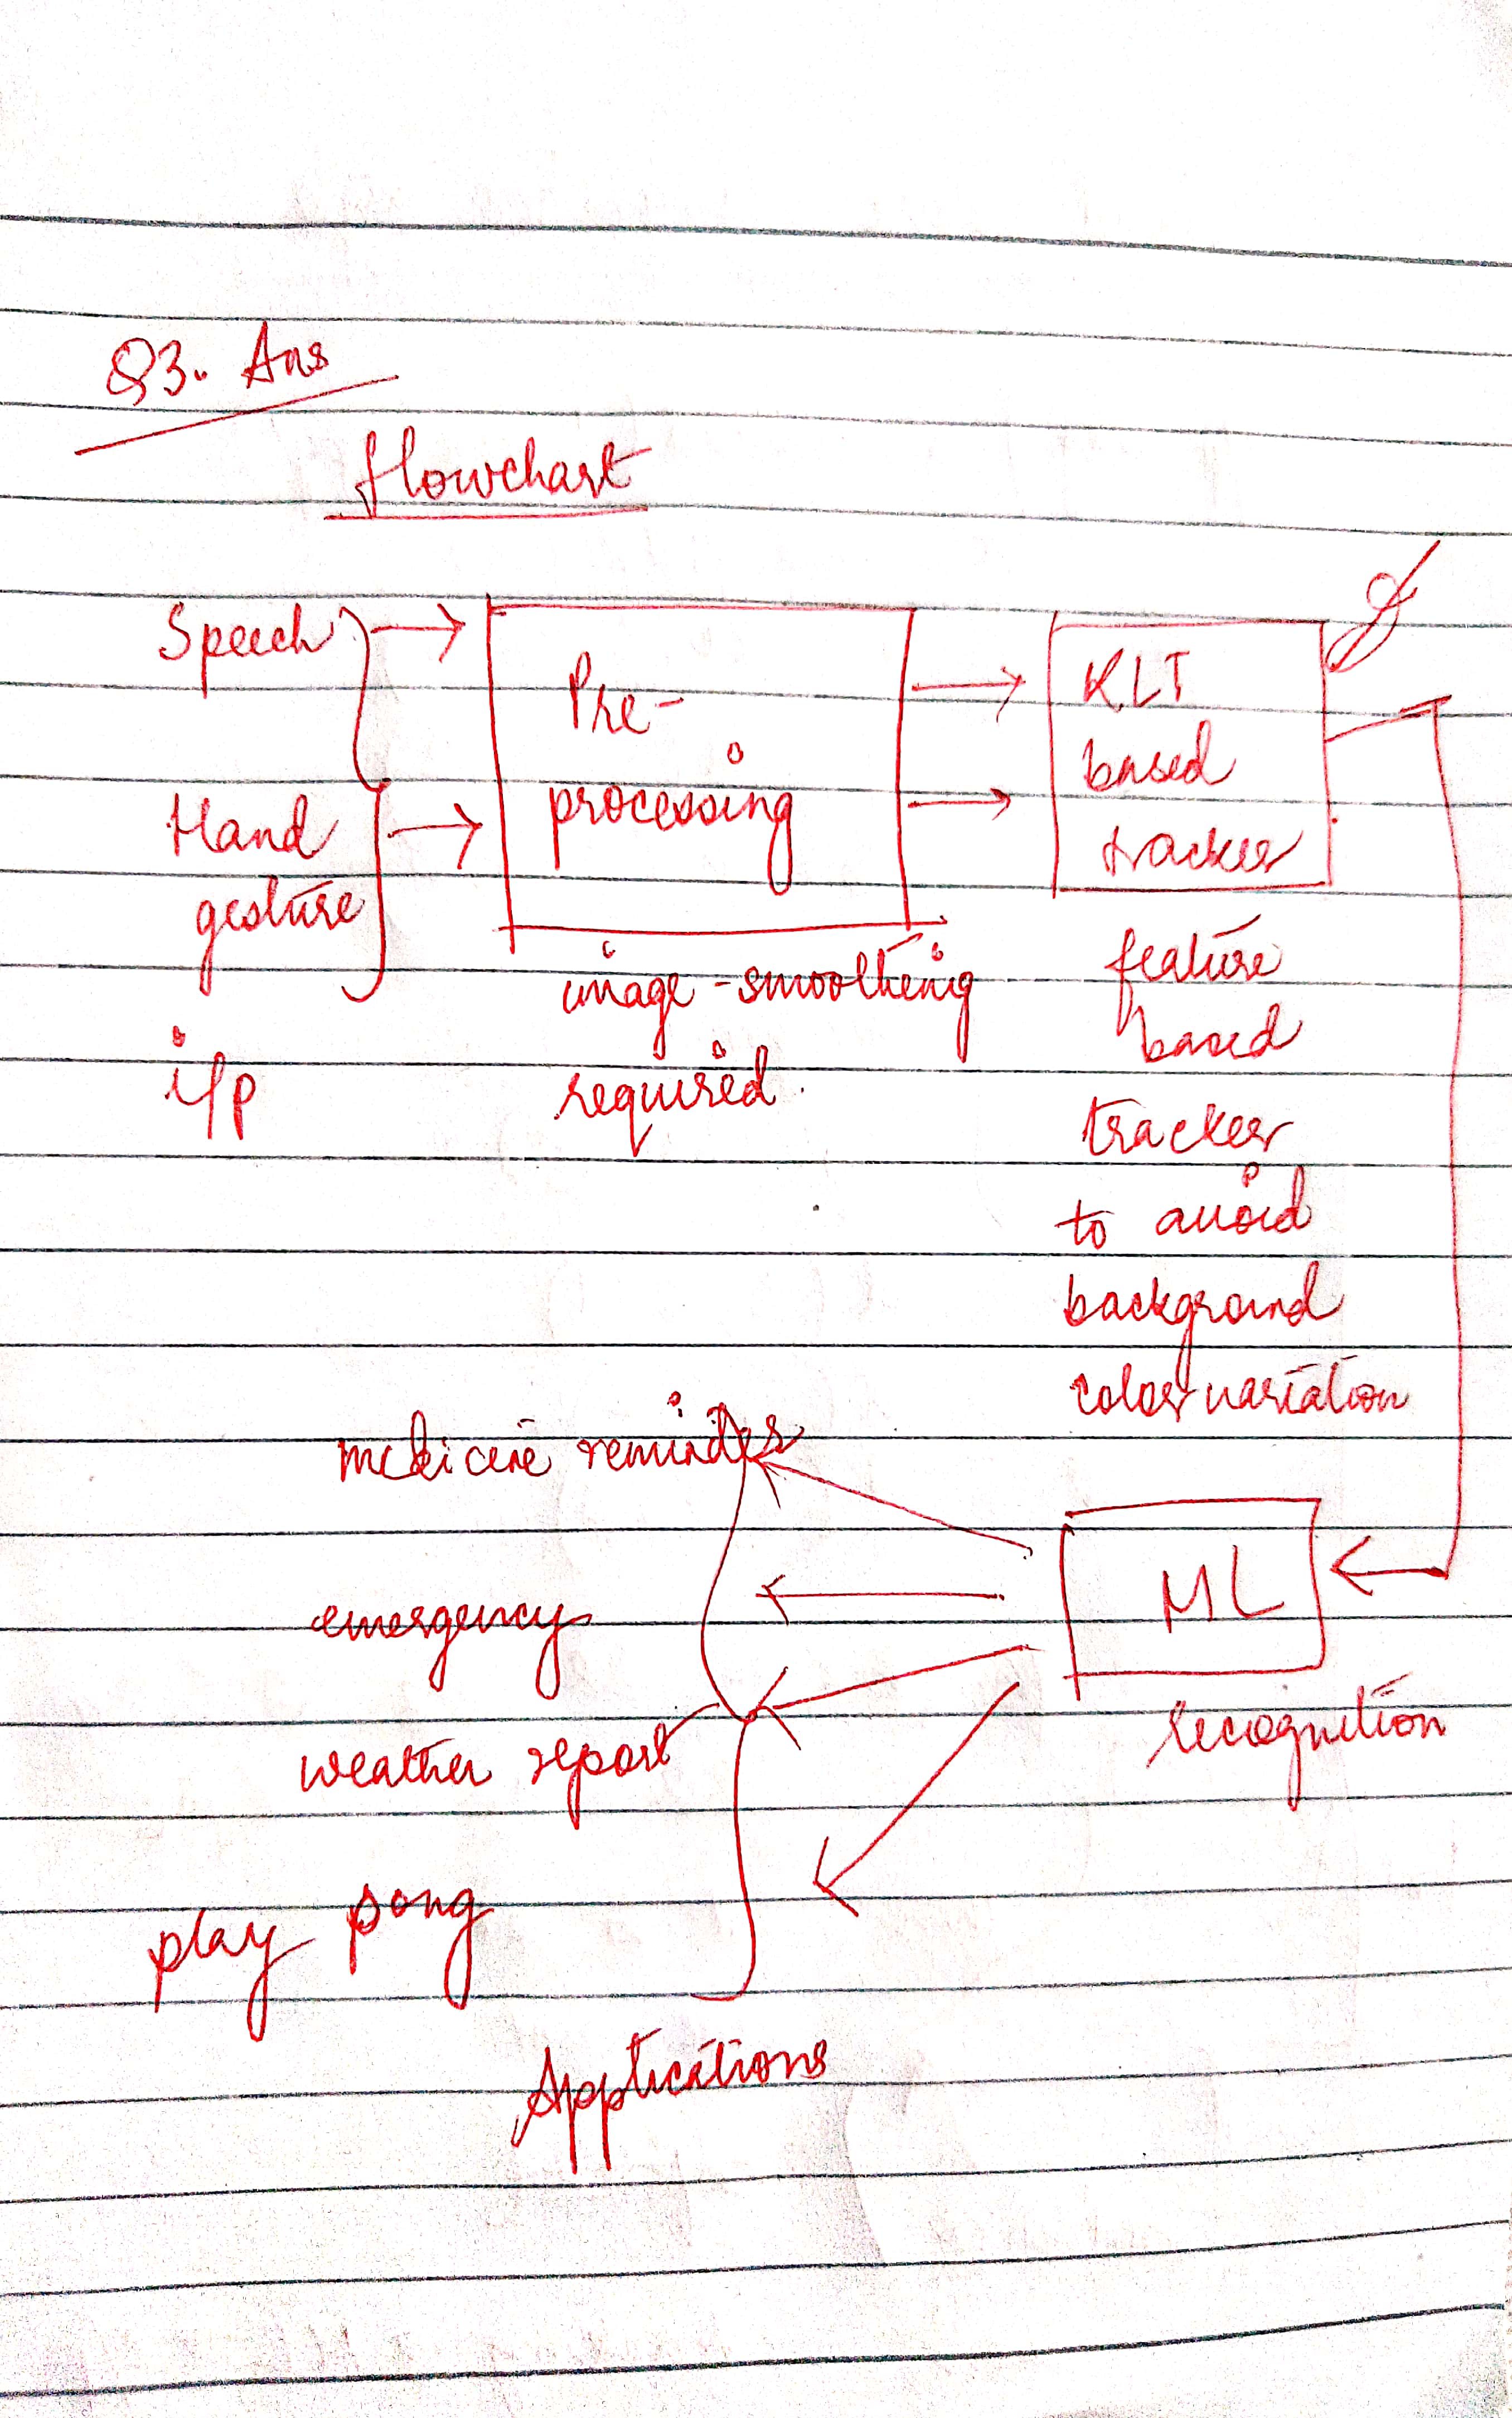 Q3. Ans
flowchart
Speech
Hand
gesture
i/p
Pre-
processing
image-smoothing
required.
KLT
based
tracker
feature
based
tracker
to avoid
background
color variation
ML
recognition
medicine reminder
emergency
weather report
play song
Applications